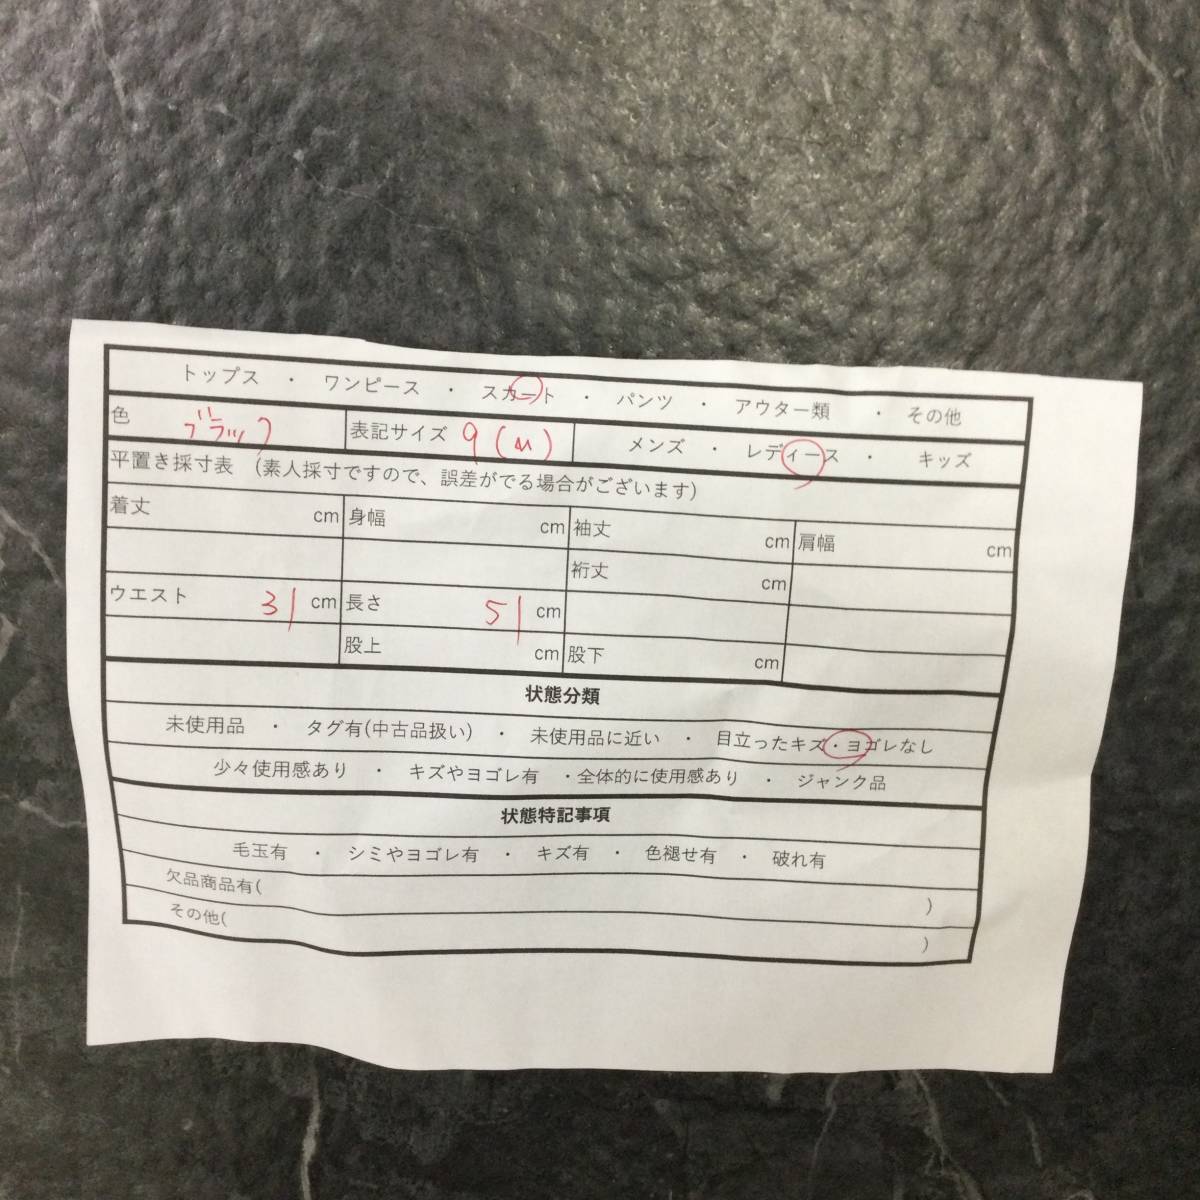 トップス ・ ワンピース ・ スカート ・ パンツ ・ アウター類 ・ その他
色 ブラック 表記サイズ 9(M) メンズ ・ レディース ・ キッズ
平置き採寸表 (素人採寸ですので、誤差がでる場合がございます)
着丈 cm 身幅 cm 袖丈 cm 肩幅 cm
裄丈 cm
ウエスト 31 cm 長さ 51 cm
股上 cm 股下 cm
状態分類
未使用品 ・ タグ有(中古品扱い) ・ 未使用品に近い ・ 目立ったキズ・ヨゴレなし
少々使用感あり ・ キズやヨゴレ有 ・全体的に使用感あり ・ ジャンク品
状態特記事項
毛玉有 ・ シミやヨゴレ有 ・ キズ有 ・ 色褪せ有 ・ 破れ有
欠品商品有( )
その他( )